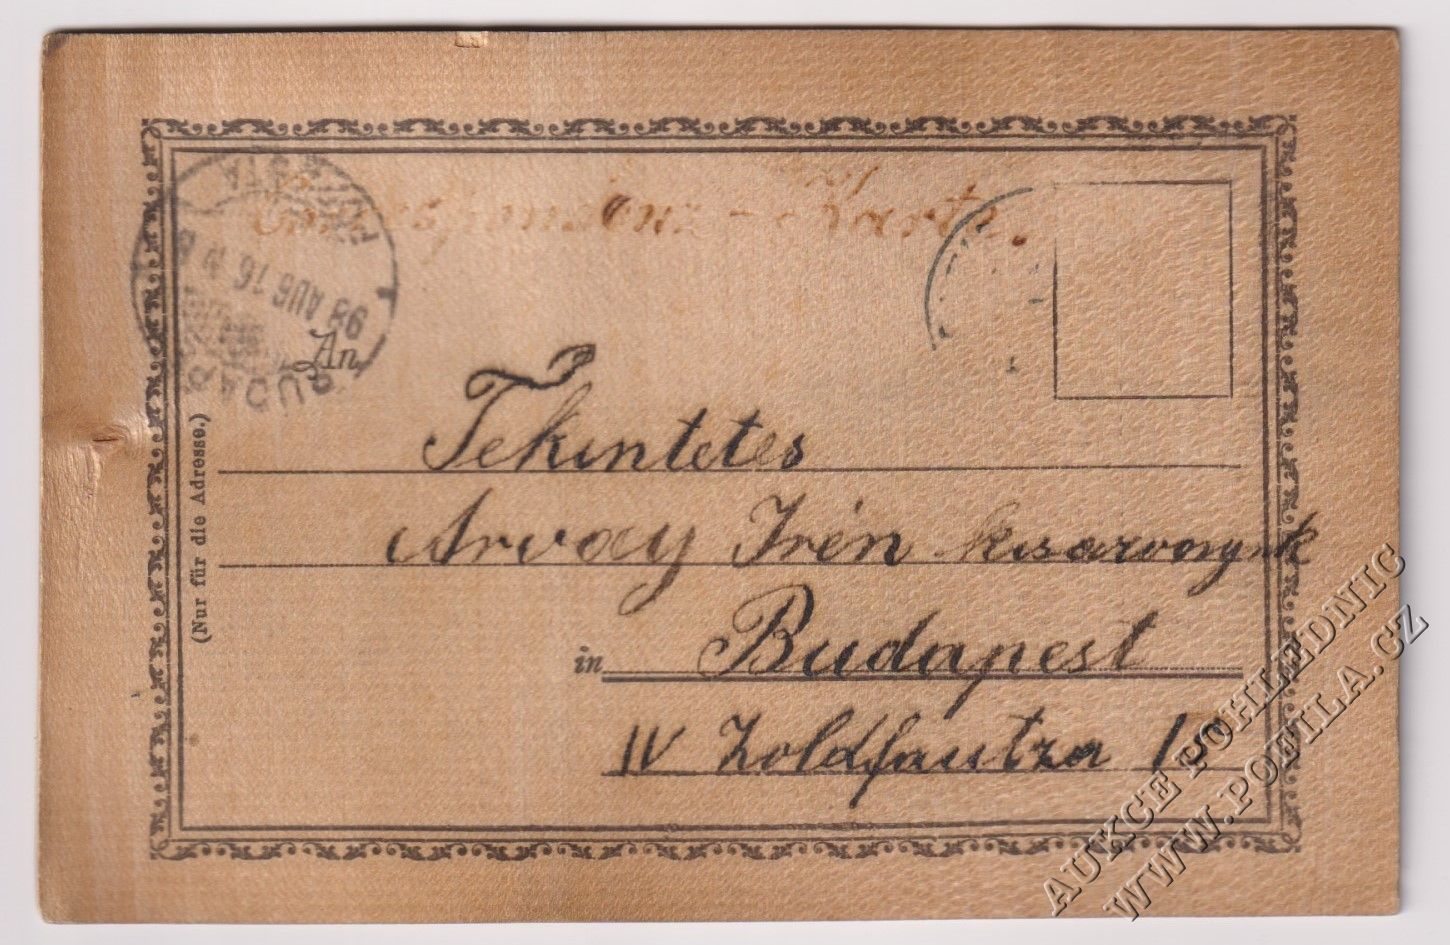 Correspondenz-Karte.
98 AUG 16
An
Tekintetes
Arvay Irén
(Nur für die Adresse.)
in Budapest
IV Zoldfautza 15
AUKCE POHLEDNIC
WWW.POFILA.CZ